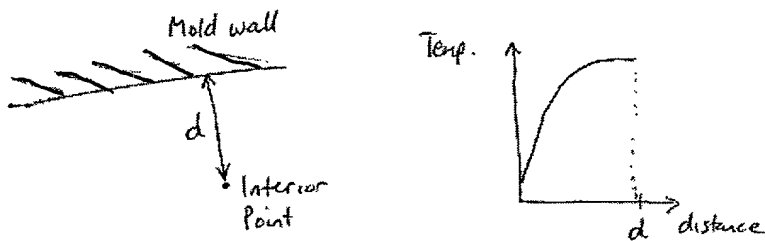 Mold wall
d
Interior
Point
Temp.
d
distance